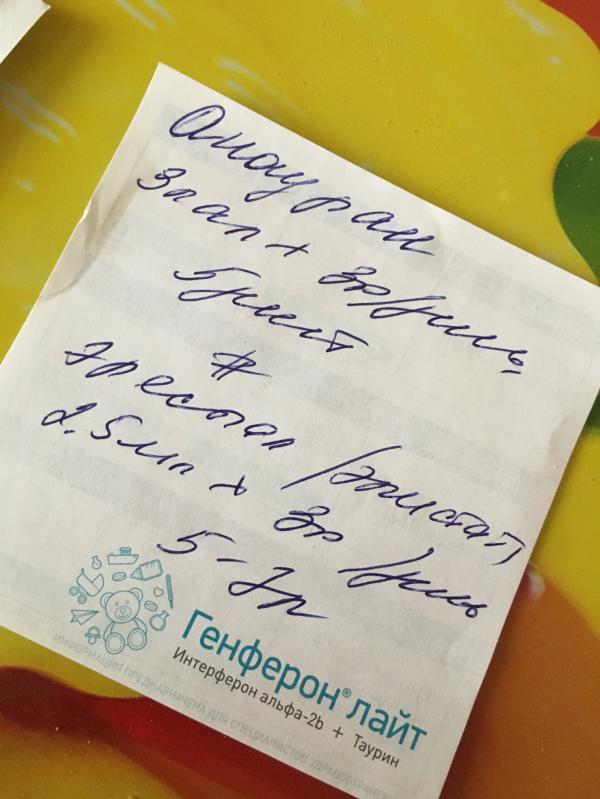 Анауран
3 кап x 3р/день
5 дней
#
Эреспал /Эпистат/
2.5 мл x 3р/день
5-7р
Генферон® лайт
Интерферон альфа-2b + Таурин
ИНФОРМАЦИЯ ПРЕДНАЗНАЧЕНА ДЛЯ СПЕЦИАЛИСТОВ ЗДРАВООХРАНЕН